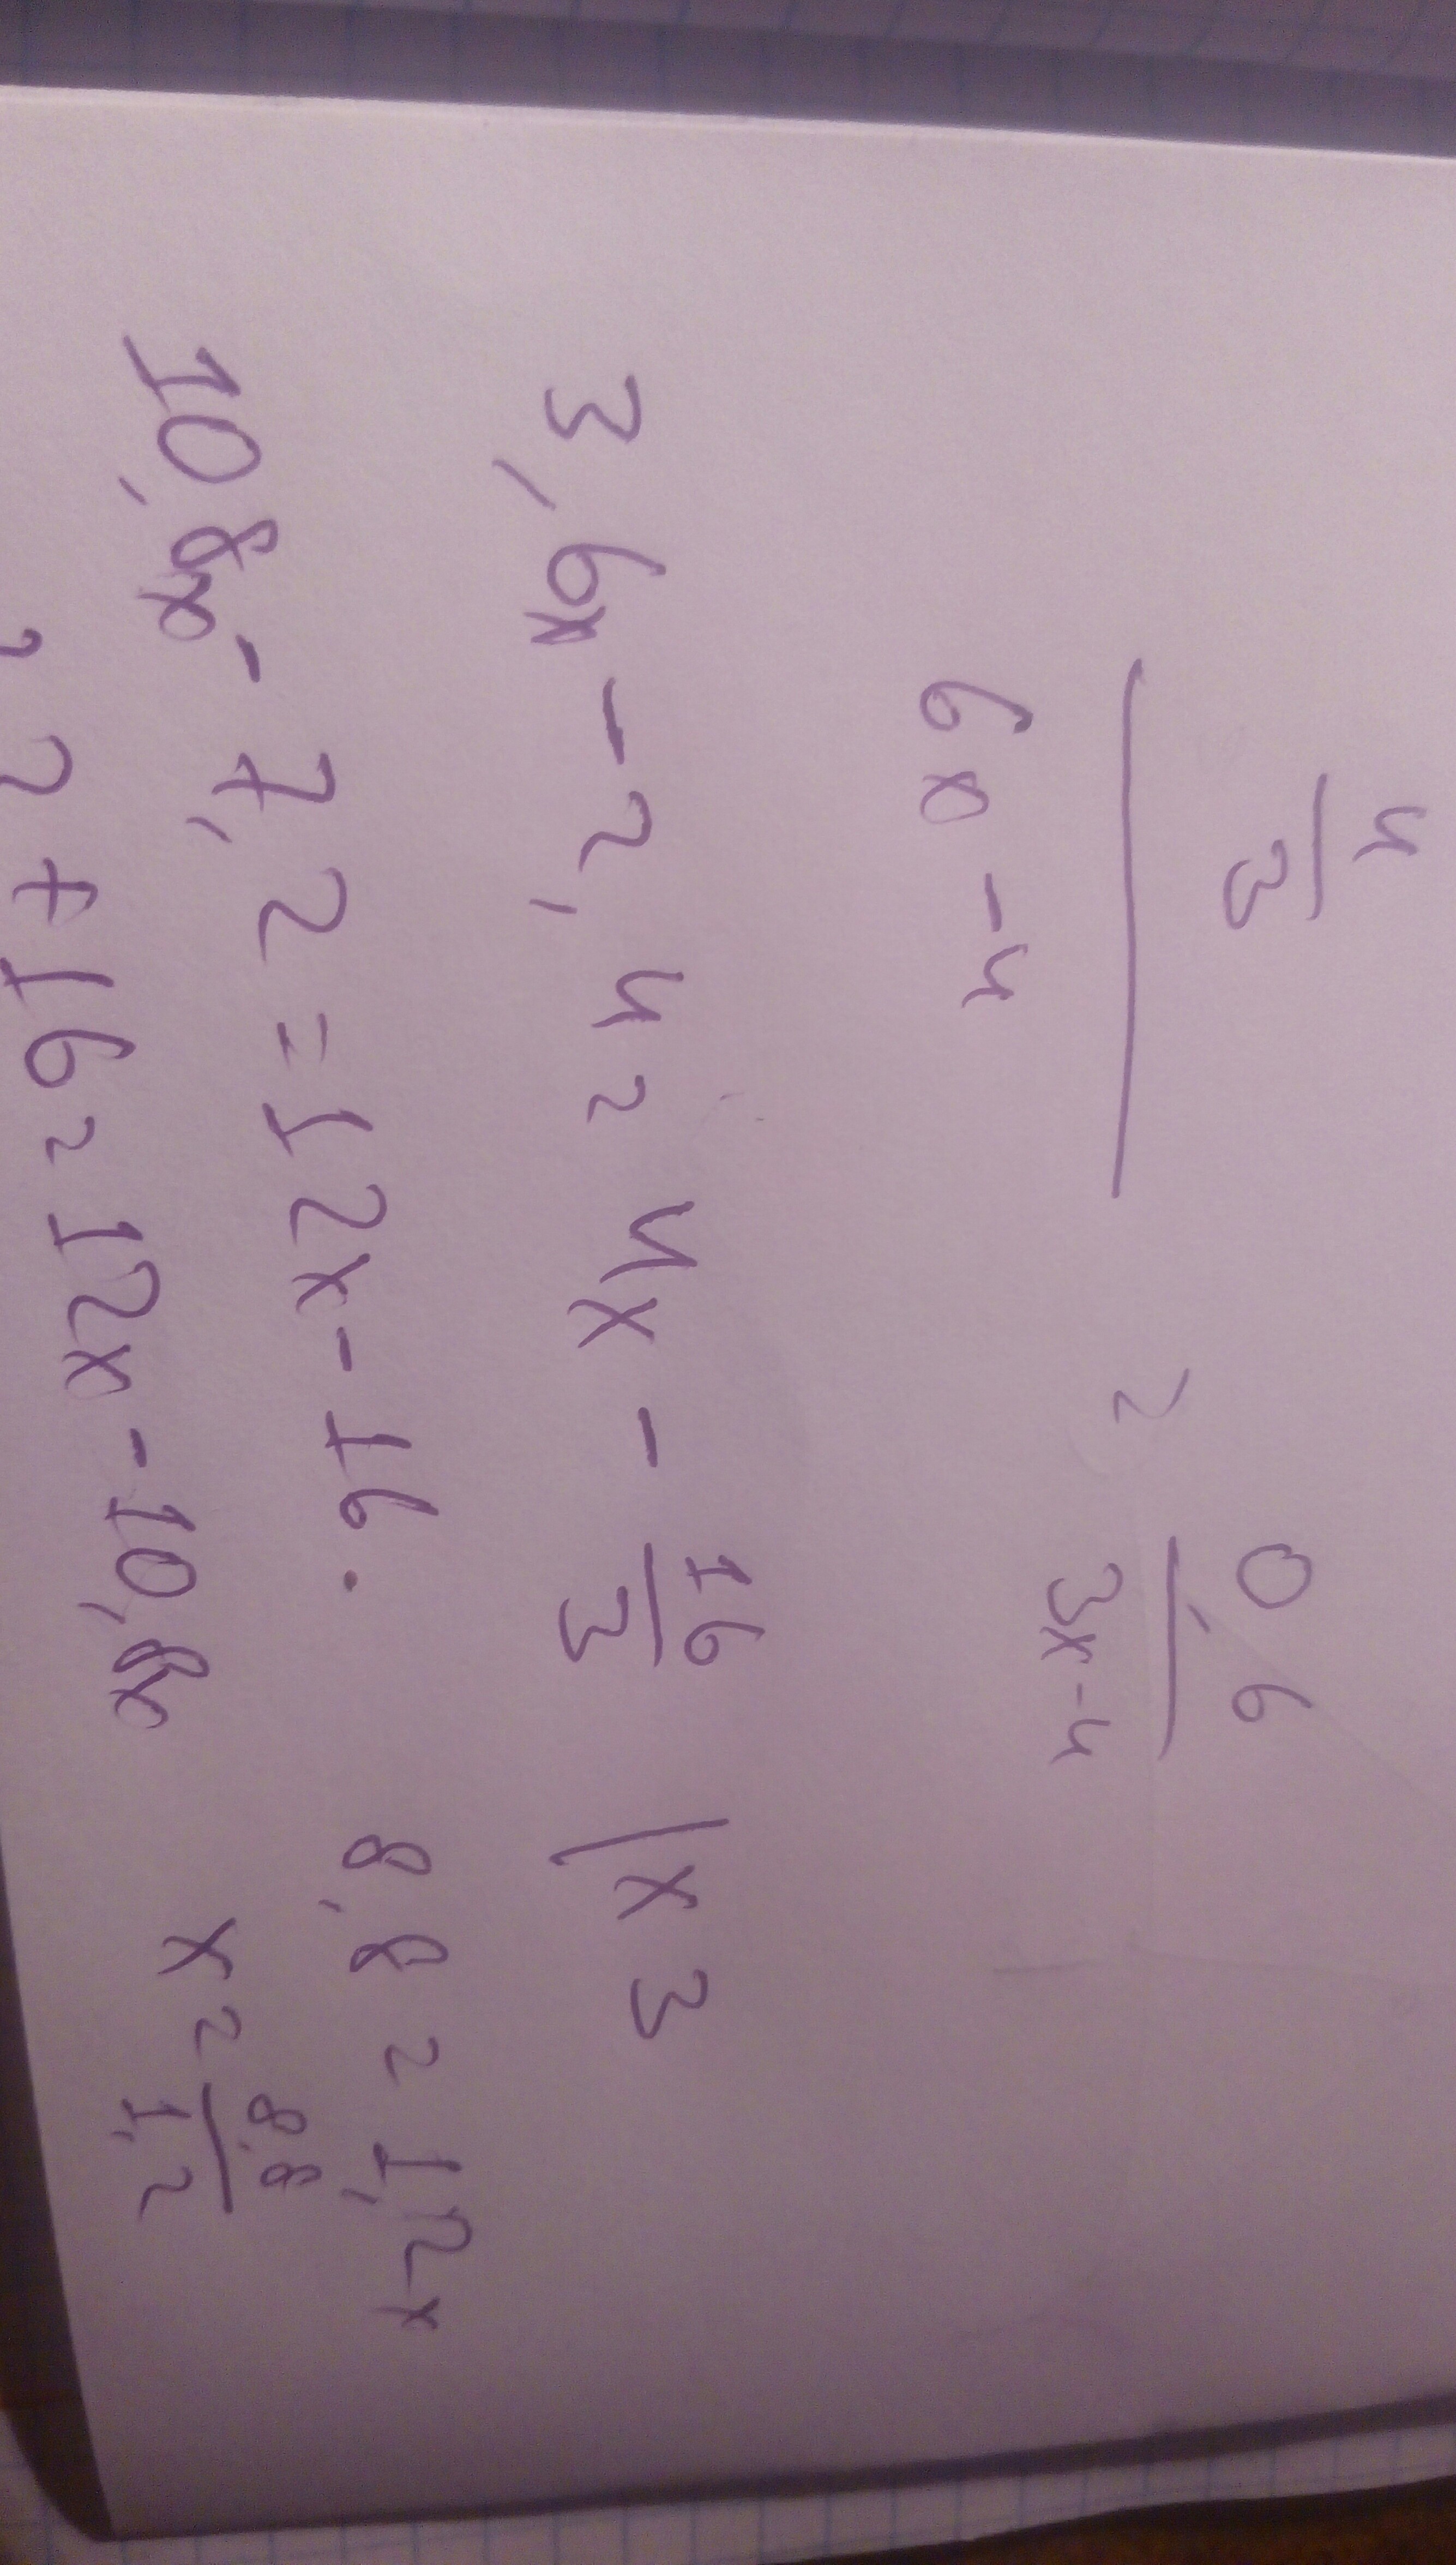 4/3 / 6x - 4 = 0,6 / 3x - 4
3,6x - 2,4 = 4x - 16/3 | x 3
10,8x - 7,2 = 12x - 16.
8,8 = 1,2x
2 + 16 = 12x - 10,8x
x = 8,8/1,2